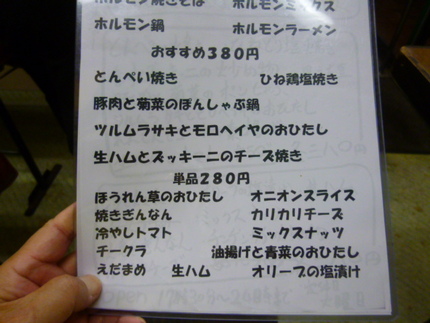 ホルモン焼きそば ホルモンミックス
ホルモン鍋 ホルモンラーメン
おすすめ380円
とんぺい焼き ひね鶏塩焼き
豚肉と菊菜のぽんしゃぶ鍋
ツルムラサキとモロヘイヤのおひたし
生ハムとズッキーニのチーズ焼き
単品280円
ほうれん草のおひたし オニオンスライス
焼きぎんなん カリカリチーズ
冷やしトマト ミックスナッツ
チークラ 油揚げと青菜のおひたし
えだまめ 生ハム オリーブの塩漬け